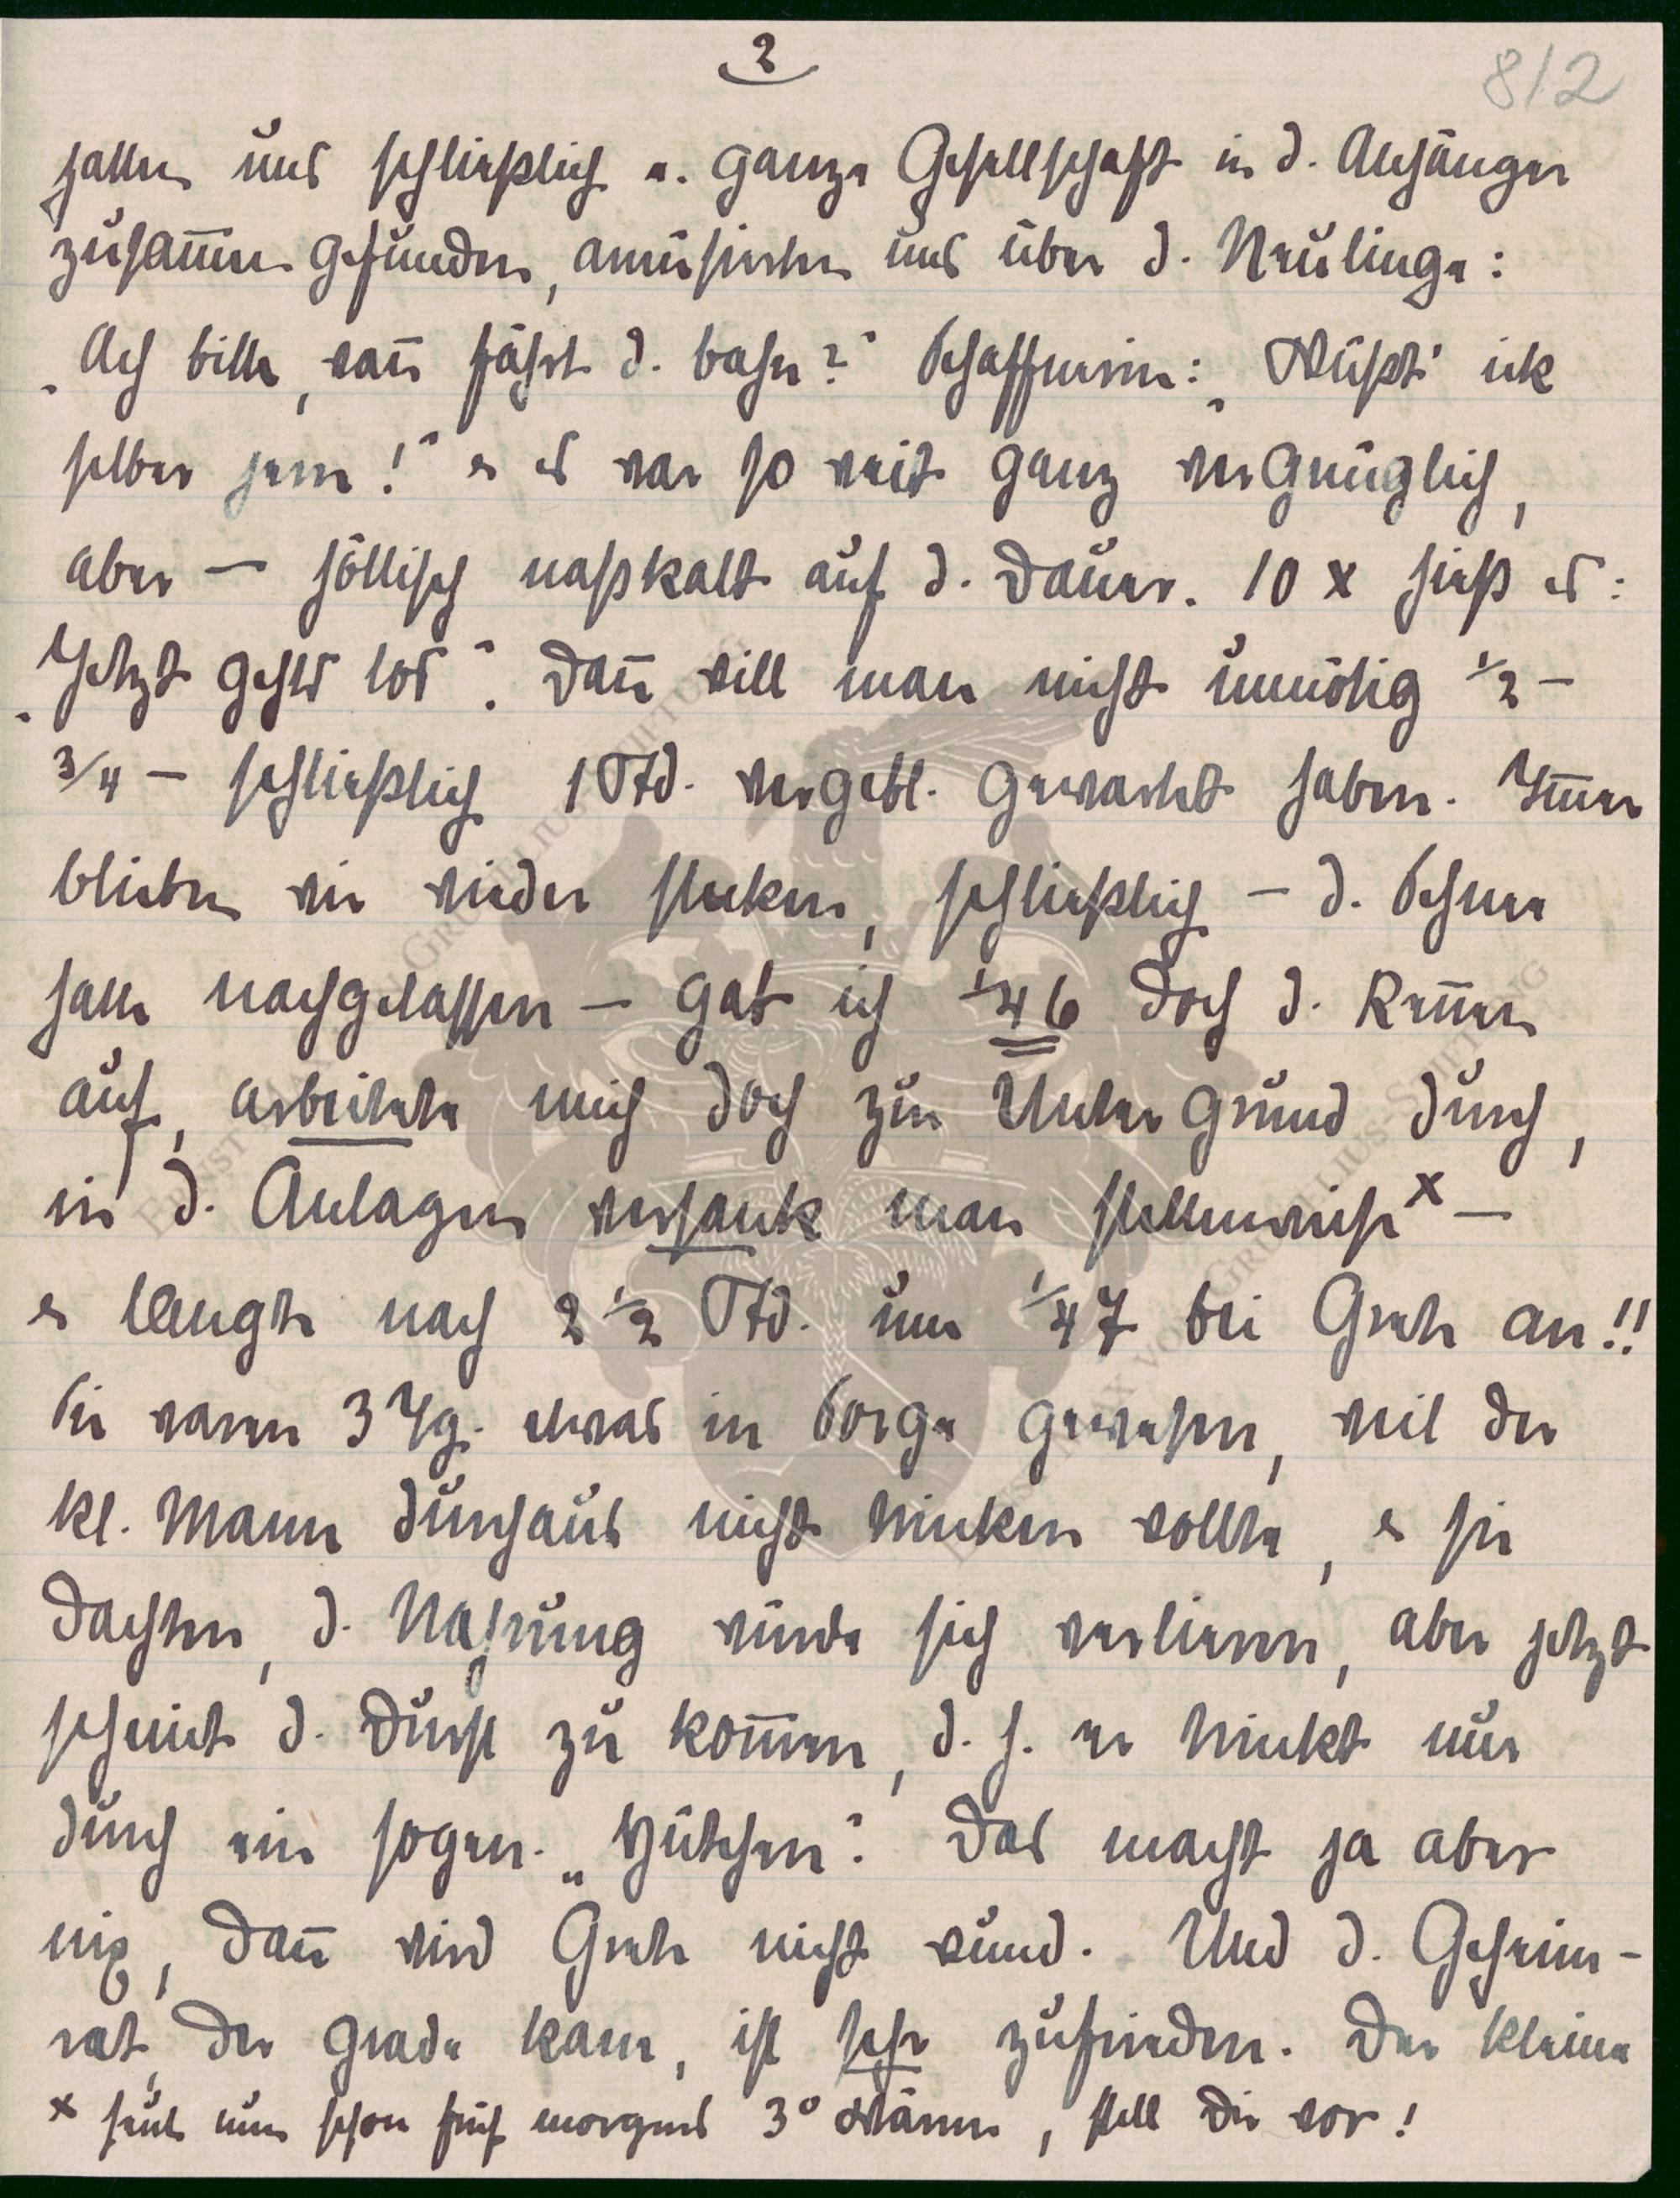 2
812
hatten uns schließlich e. ganze Gesellschaft in d. Anhänger
zusam̄en gefunden, amüsierten uns über d. Neulinge:
„Ach bitte, wan̄ fährt d. bahn?“ Schaffnerin: „Wüßt' ick
selber jern!“ & es war so weit ganz vergnüglich,
aber – höllisch naßkalt auf d. Dauer. 10 x hieß es:
„Jetzt gehts los“. Dan̄ will man nicht unnötig ½ –
¾ – schließlich 1 Std. vergebl. gewartet haben. Im̄er
blieben wir wieder stecken, schließlich – d. Schnee
hatte nachgelassen – gab ich ¼6 doch d. Ren̄en
auf, arbeitete mich doch zur Untergrund durch,
in d. Anlagen versank man stellenweise x –
& langte nach 2 ½ Std. um ¼7 bei Grete an!!
Sie waren 3 Tg. etwas in Sorge gewesen, weil der
kl. Mann durchaus nicht trinken wollte, & sie
dachten, d. Nahrung würde sich verlieren, aber jetzt
scheint d. Durst zu kom̄en, d. h. er trinkt nur
durch ein sogen. „Hütchen“. Das macht ja aber
nix, dan̄ wird Grete nicht wund. Und d. Geheim-
rat, der grade kam, ist sehr zufrieden. Der kleine
x heute nun schon früh morgens 3° Wärme, stell Dir vor!
ERNST MAX VON GRUNELIUS-STIFTUNG
ERNST MAX VON GRUNELIUS-STIFTUNG